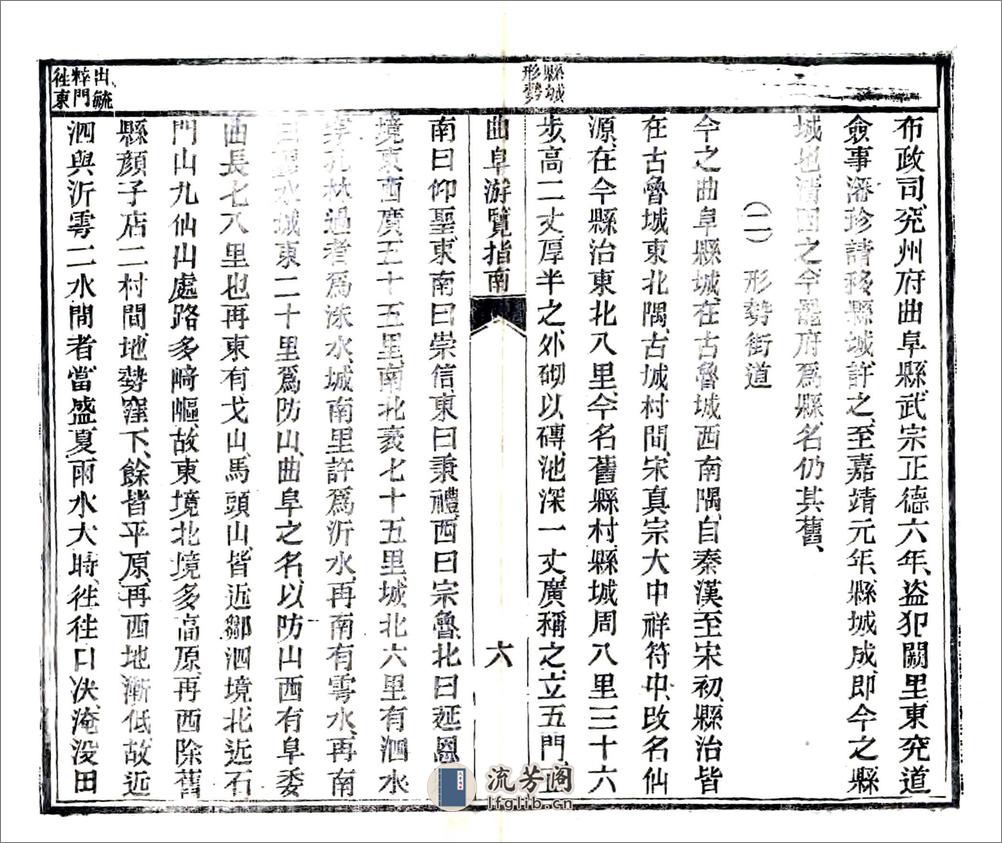 布政司、兖州府曲阜縣、武宗正德六年、盗犯闕里、東兖道
僉事潘珍請移縣城、許之、至嘉靖元年、縣城成、即今之縣
城也、清因之、今罷府爲縣、名仍其舊、
（二）形勢街道
縣城
形勢
今之曲阜縣城、在古魯城西南隅、自秦漢至宋初、縣治皆
在古魯城東北隅、古城村間、宋真宗大中祥符中、改名仙
源、在今縣治東北八里、今名舊縣村、縣城周八里三十六
步、高二丈、厚半之、外砌以磚、池深一丈、廣稱之、立五門、正
曲阜游覽指南
六
南曰仰聖、東南曰崇信、東曰秉禮、西曰宗魯、北曰延恩、
境東西廣五十五里、南北袤七十五里、城北六里有泗水、
孔林過者爲洙水、城南里許爲沂水、再南有雩水、再南
水、城東二十里爲防山、曲阜之名、以防山西有阜委
曲長七八里也、再東有戈山、馬頭山、皆近鄒泗境、北近石
門山、九仙山處、路多崎嶇、故東境北境多高原、再西除舊
縣顏子店二村間地勢窪下、餘皆平原、再西地漸低、故近
泗與沂雩二水間者、當盛夏雨水大時、往往口决、淹没田
出毓
粹門
往東
流芳阁
lfglib.cn